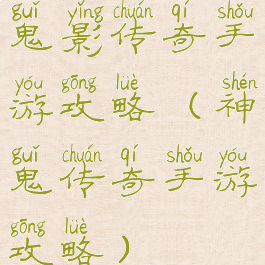 guǐ yǐng chuán qí shǒu
鬼影传奇手
yóu gōng lüè shén
游攻略（神
guǐ chuán qí shǒu yóu
鬼传奇手游
gōng lüè
攻略）